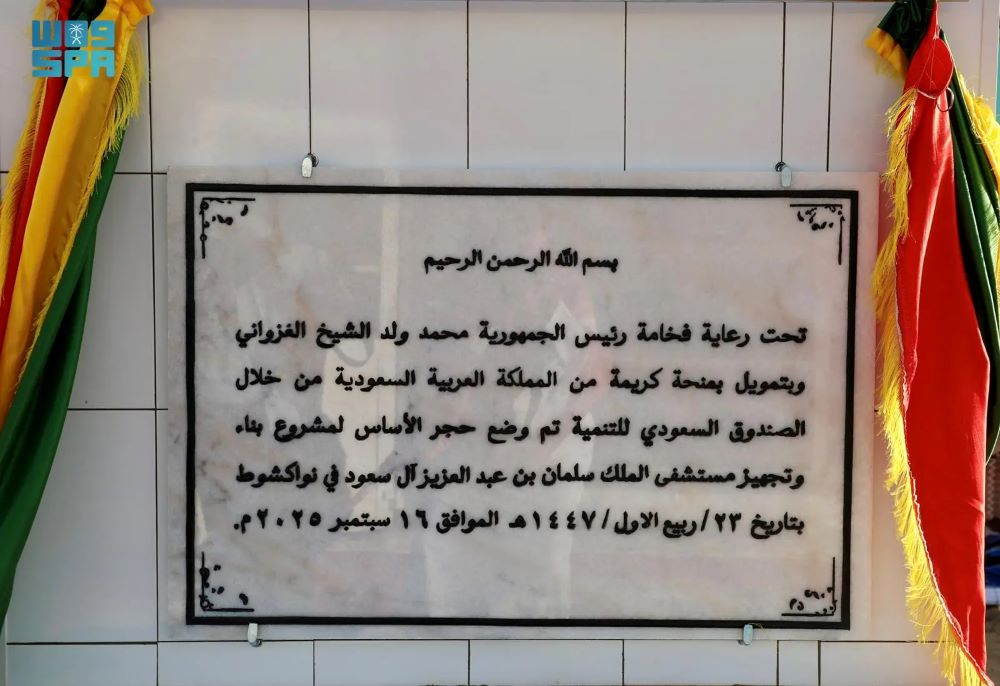 واس
SPA
بسم الله الرحمن الرحيم
تحت رعاية فخامة رئيس الجمهورية محمد ولد الشيخ الغزواني
وبتمويل بمنحة كريمة من المملكة العربية السعودية من خلال
الصندوق السعودي للتنمية تم وضع حجر الأساس لمشروع بناء
وتجهيز مستشفى الملك سلمان بن عبد العزيز آل سعود في نواكشوط
بتاريخ ٢٣/ربيع الاول/١٤٤٧هـ الموافق ١٦ سبتمبر ٢٠٢٥م.